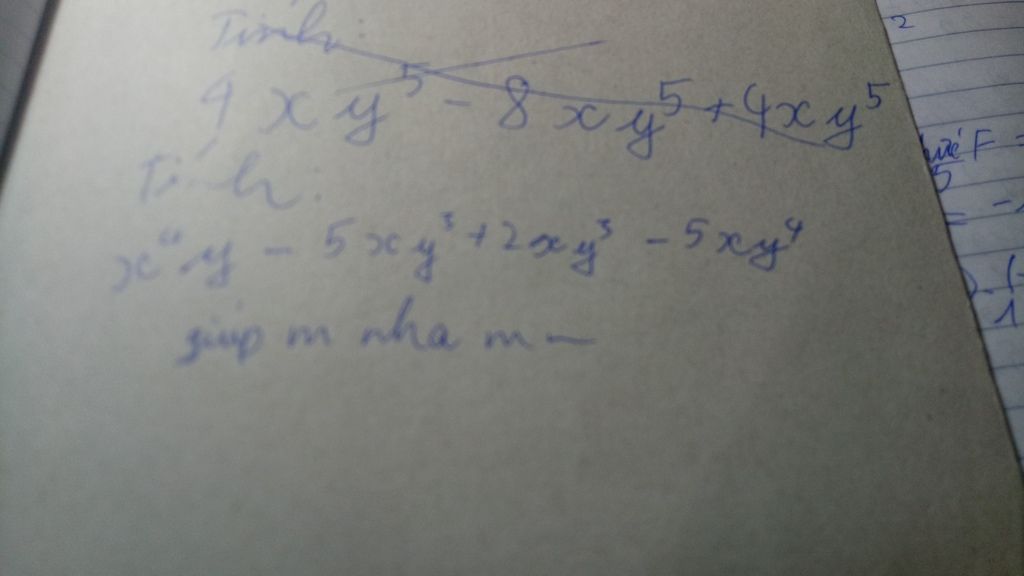 Tính:
4xy⁵ - 8xy⁵ + 4xy⁵
Tính:
x⁴y - 5xy³ + 2xy³ - 5xy⁴
giúp m nha m
2
F =
5
= -1
1